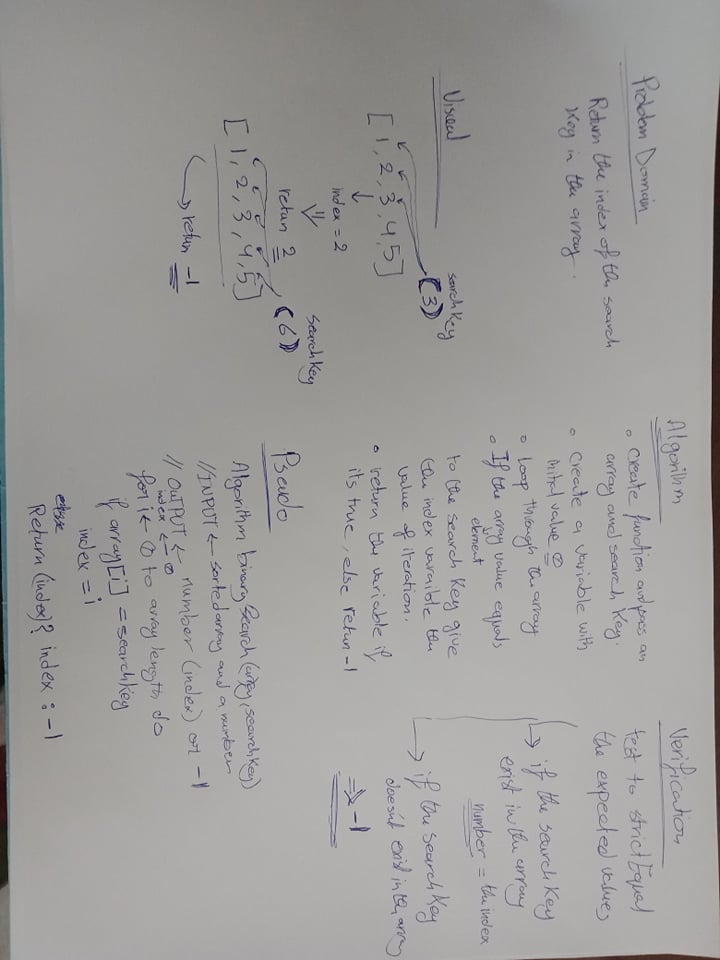 Problem Domain
Return the index of the search
key in the array.
Visual
searchkey
[1, 2, 3, 4, 5] (3)
index = 2
return 2
searchkey
[1, 2, 3, 4, 5] (6)
return -1
Algorithm
• create function and pass an
array and search key.
• create a variable with
inital value 0
• Loop through the array
• If the array value equals
element
to the search key give
the index varaible the
value of iteration.
• return the variable if
its true, else retun -1
Pseudo
Algorithm binarySearch (array, searchkey)
// INPUT ← sorted array and a number
// OUTPUT ← number (index) or -1
index ← 0
for i ← 0 to array length do
if array[i] = searchkey
index = i
Return (index)? index : -1
Verification
test to strictEqual
the expected values
→ if the searchkey
exist in the array
number = the index
→ if the searchkey
doesn't exist in the array
⇒ -1